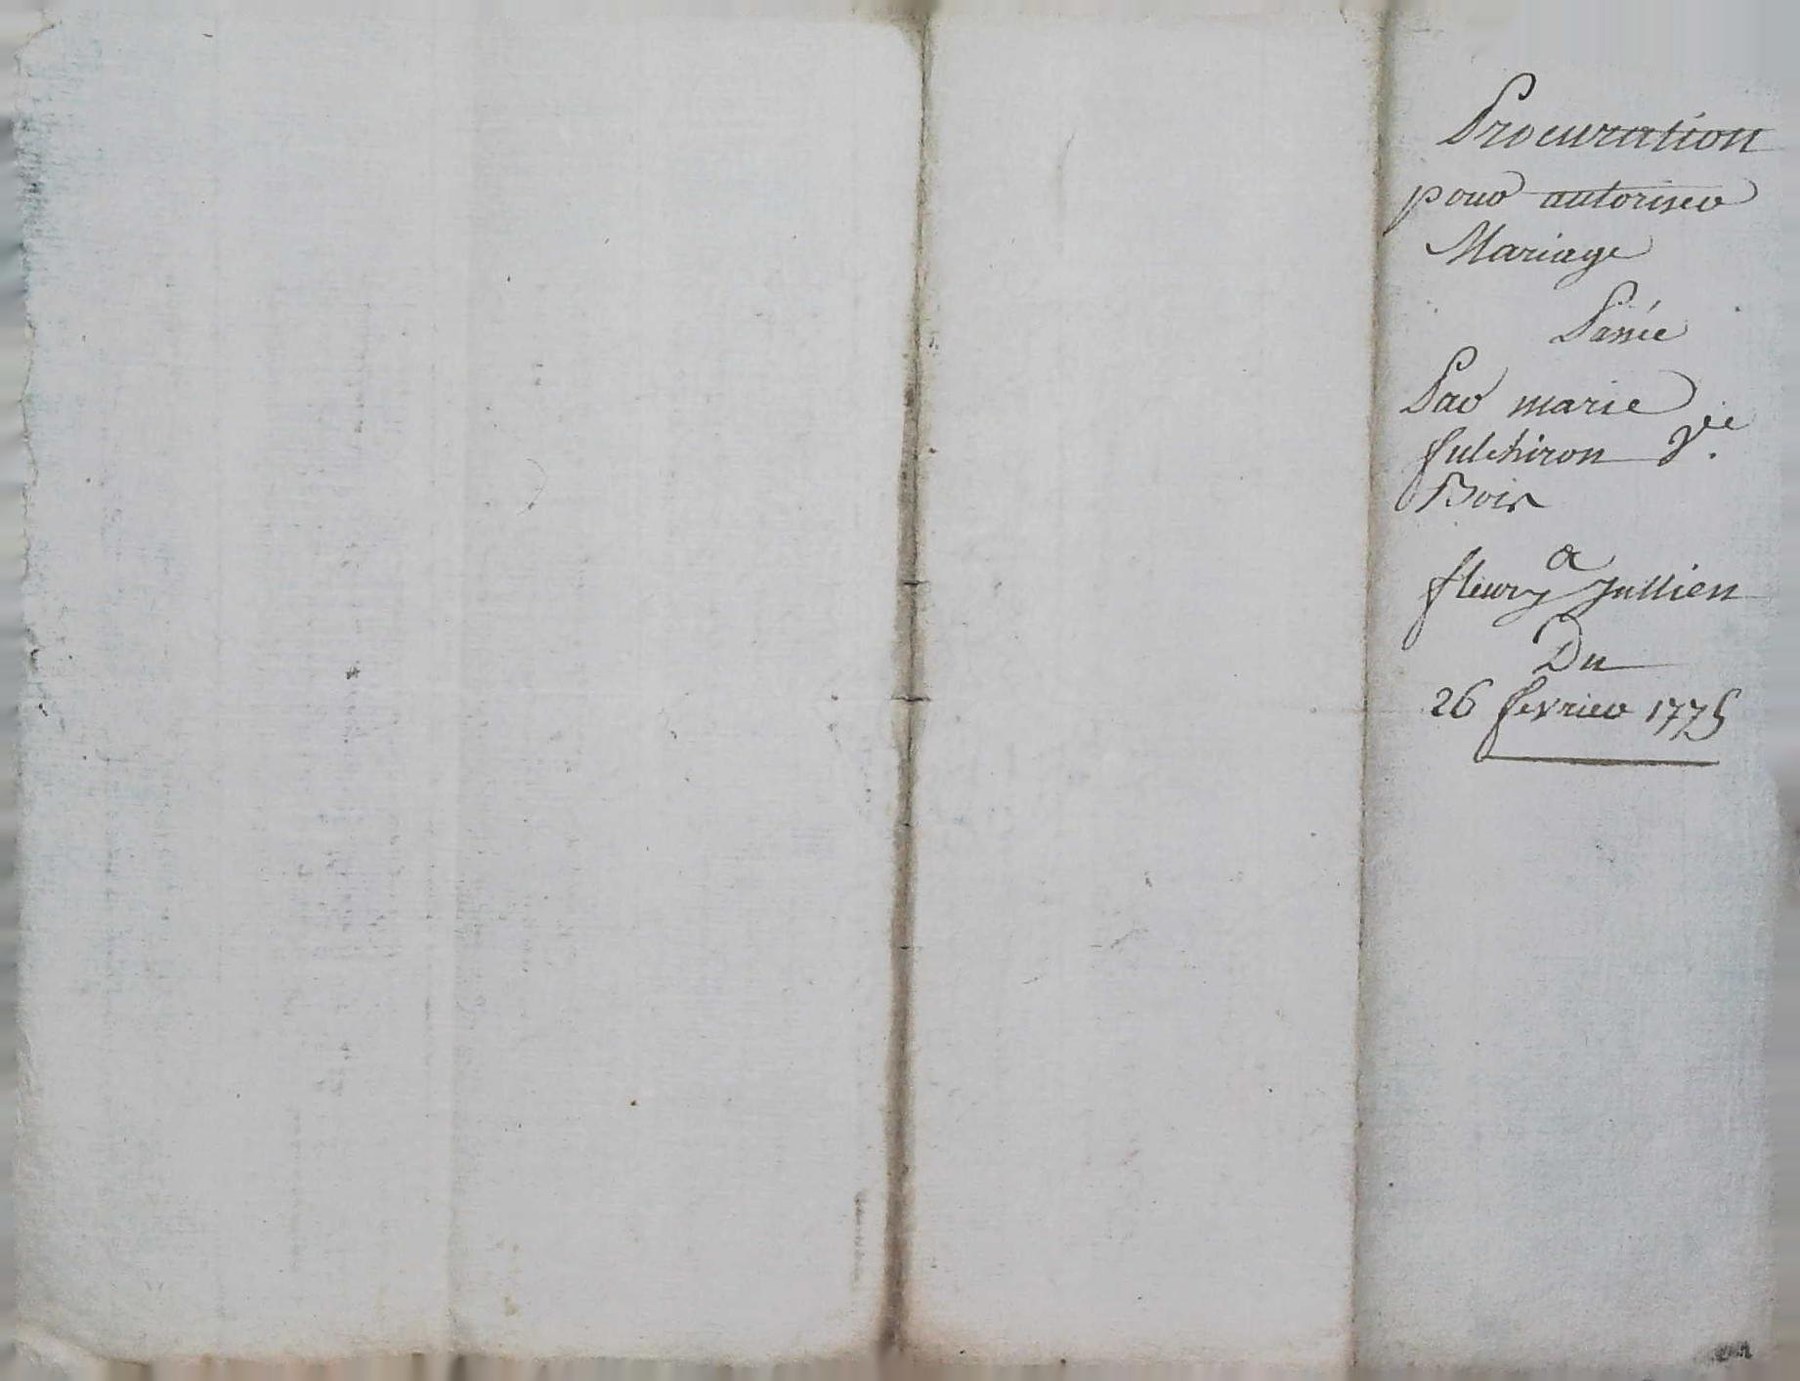 Procuration
pour autoriser
Mariage
Passée
Par marie
fulchiron Vve.
Bois
a
fleury Jullien
Du
26 fevrier 1775